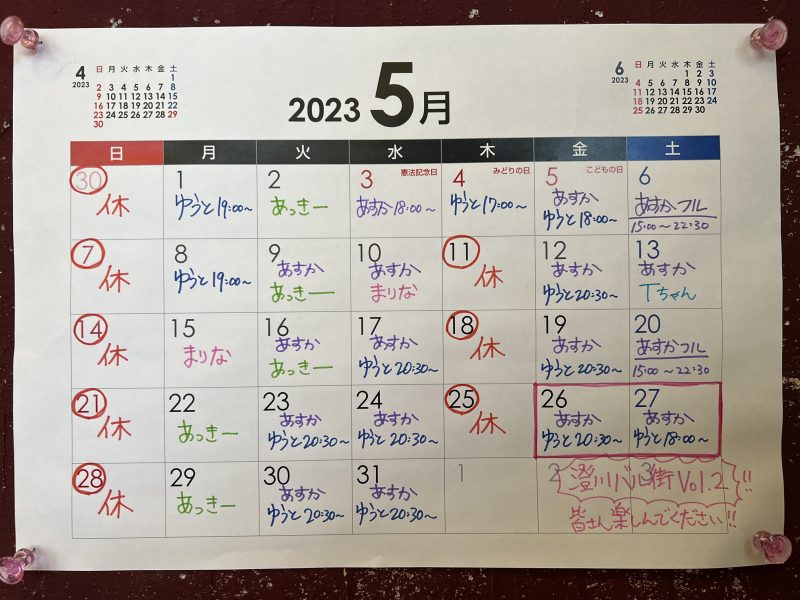 4
2023
日 月 火 水 木 金 土
1
2 3 4 5 6 7 8
9 10 11 12 13 14 15
16 17 18 19 20 21 22
23 24 25 26 27 28 29
30
2023 5月
6
2023
日 月 火 水 木 金 土
1 2 3
4 5 6 7 8 9 10
11 12 13 14 15 16 17
18 19 20 21 22 23 24
25 26 27 28 29 30
日 月 火 水 木 金 土
30
休
1
ゆうと 19:00〜
2
あっきー
3 憲法記念日
あすか 18:00〜
4 みどりの日
ゆうと 17:00〜
5 こどもの日
あすか
ゆうと 18:00〜
6
あすかフル
15:00〜22:30
7
休
8
ゆうと 19:00〜
9
あすか
あっきー
10
あすか
まりな
11
休
12
あすか
ゆうと 20:30〜
13
あすか
Tちゃん
14
休
15
まりな
16
あすか
あっきー
17
あすか
ゆうと 20:30〜
18
休
19
あすか
ゆうと 20:30〜
20
あすかフル
15:00〜22:30
21
休
22
あっきー
23
あすか
ゆうと 20:30〜
24
あすか
ゆうと 20:30〜
25
休
26
あすか
ゆうと 20:30〜
27
あすか
ゆうと 18:00〜
28
休
29
あっきー
30
あすか
ゆうと 20:30〜
31
あすか
ゆうと 20:30〜
1
2
3
澄川バル街 Vol.2!!
皆さん楽しんでください!!